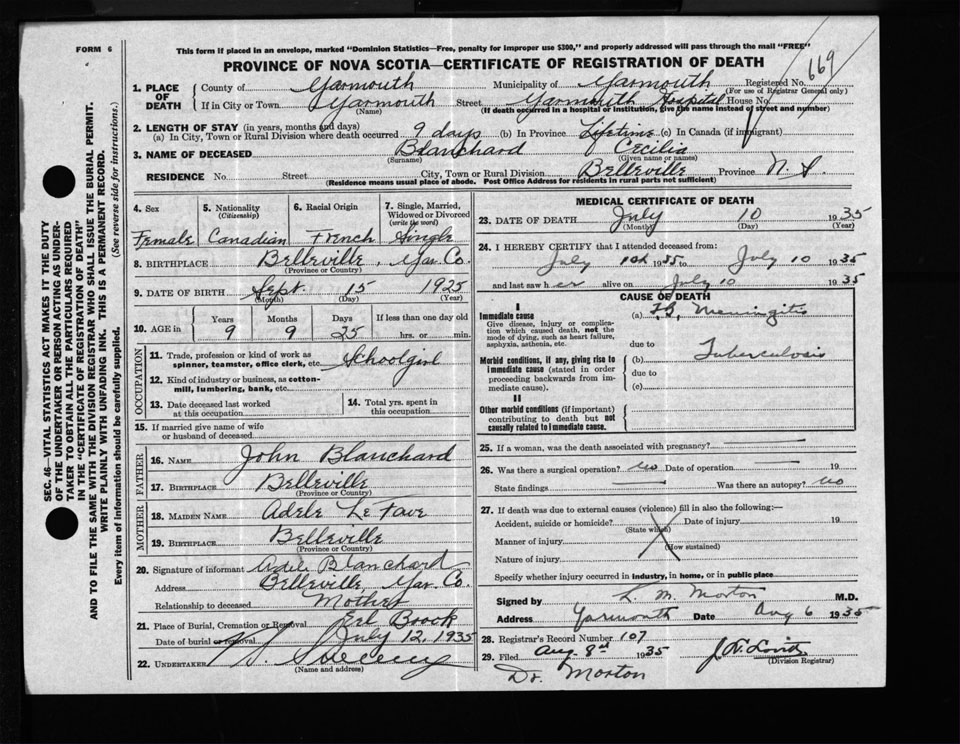 FORM 6
This form if placed in an envelope, marked "Dominion Statistics—Free, penalty for improper use $300," and properly addressed will pass through the mail "FREE"
PROVINCE OF NOVA SCOTIA—CERTIFICATE OF REGISTRATION OF DEATH
669
1. PLACE OF DEATH
County of Yarmouth Municipality of Yarmouth Registered No.
(For use of Registrar General only)
If in City or Town Yarmouth Street Yarmouth Hospital House No.
(Name) (If death occurred in a hospital or institution, give the name instead of street and number)
2. LENGTH OF STAY (in years, months and days)
(a) In City, Town or Rural Division where death occurred 9 days (b) In Province Lifetime (c) In Canada (if immigrant)
3. NAME OF DECEASED Blanchard Cecilia
(Surname) (Given name or names)
RESIDENCE No. Street City, Town or Rural Division Belleville Province N.S.
(Residence means usual place of abode. Post Office Address for residents in rural parts not sufficient)
4. Sex Female
5. Nationality (Citizenship) Canadian
6. Racial Origin French
7. Single, Married, Widowed or Divorced (write the word) Single
8. BIRTHPLACE Belleville, Yar. Co.
(Province or Country)
9. DATE OF BIRTH Sept. 15 1925
(Month) (Day) (Year)
10. AGE in Years 9 Months 9 Days 25 If less than one day old hrs. or min.
OCCUPATION
11. Trade, profession or kind of work as spinner, teamster, office clerk, etc. Schoolgirl
12. Kind of industry or business, as cotton-mill, lumbering, bank, etc.
13. Date deceased last worked at this occupation
14. Total yrs. spent in this occupation
15. If married give name of wife or husband of deceased
FATHER
16. NAME John Blanchard
17. BIRTHPLACE Belleville
(Province or Country)
MOTHER
18. MAIDEN NAME Adele LeFave
19. BIRTHPLACE Belleville
(Province or Country)
20. Signature of informant Adele Blanchard
Address Belleville, Yar. Co.
Relationship to deceased Mother
21. Place of Burial, Cremation or Removal Brook
Date of burial or removal July 12, 1935
22. UNDERTAKER Sweeny
(Name and address)
MEDICAL CERTIFICATE OF DEATH
23. DATE OF DEATH July 10 1935
(Month) (Day) (Year)
24. I HEREBY CERTIFY that I attended deceased from:
July 1935 to July 10 1935
and last saw her alive on July 10 1935
CAUSE OF DEATH
I
Immediate cause
Give disease, injury or complication which caused death, not the mode of dying, such as heart failure, asphyxia, asthenia, etc.
(a) Meningitis
due to
Morbid conditions, if any, giving rise to immediate cause (stated in order proceeding backwards from immediate cause).
(b) Tuberculosis
due to
(c)
II
Other morbid conditions (if important) contributing to death but not causally related to immediate cause.
25. If a woman, was the death associated with pregnancy?
26. Was there a surgical operation? no Date of operation 19
State findings Was there an autopsy? no
27. If death was due to external causes (violence) fill in also the following:—
Accident, suicide or homicide? Date of injury 19
(State which)
Manner of injury
(How sustained)
Nature of injury
Specify whether injury occurred in industry, in home, or in public place
Signed by L. M. Morton M.D.
Address Yarmouth Date Aug 6 1935
28. Registrar's Record Number 107
29. Filed Aug. 8th 1935
(Division Registrar)
Dr. Morton
SEC. 46—VITAL STATISTICS ACT MAKES IT THE DUTY
OF THE UNDERTAKER OR PERSON ACTING AS UNDER-
TAKER TO OBTAIN ALL THE PARTICULARS REQUIRED
IN THE "CERTIFICATE OF REGISTRATION OF DEATH"
AND TO FILE THE SAME WITH THE DIVISION REGISTRAR WHO SHALL ISSUE THE BURIAL PERMIT.
WRITE PLAINLY WITH UNFADING INK. THIS IS A PERMANENT RECORD.
Every item of information should be carefully supplied. (See reverse side for instructions.)